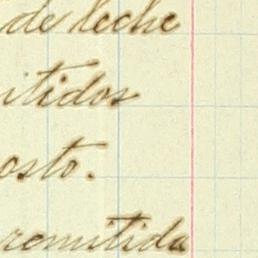 de leche
itidos
osto.
remitida